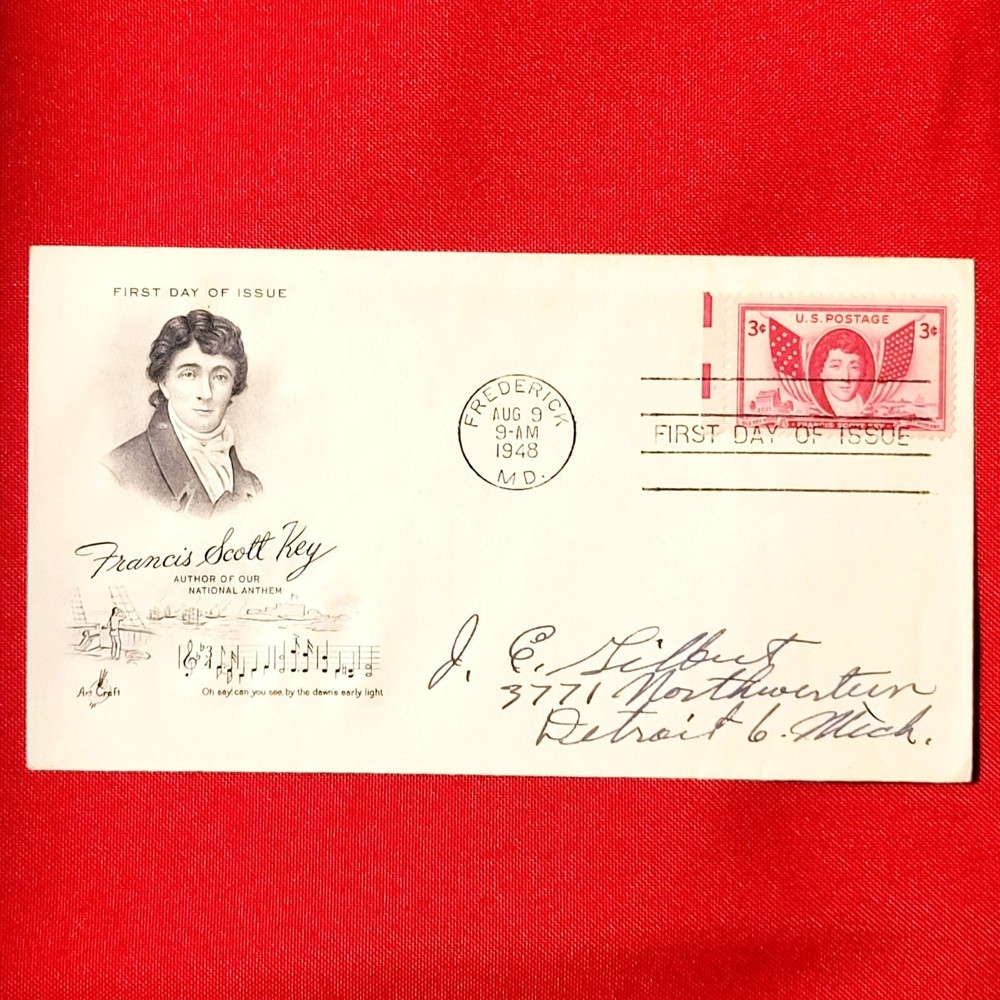 FIRST DAY OF ISSUE
Francis Scott Key
AUTHOR OF OUR
NATIONAL ANTHEM
Oh say! can you see, by the dawn's early light
Art Craft
FREDERICK
AUG 9
9-AM
1948
MD.
U.S. POSTAGE
3¢ 3¢
FRANCIS SCOTT KEY
FIRST DAY OF ISSUE
J. E. Gilbert
3771 Northwestern
Detroit 6. Mich.